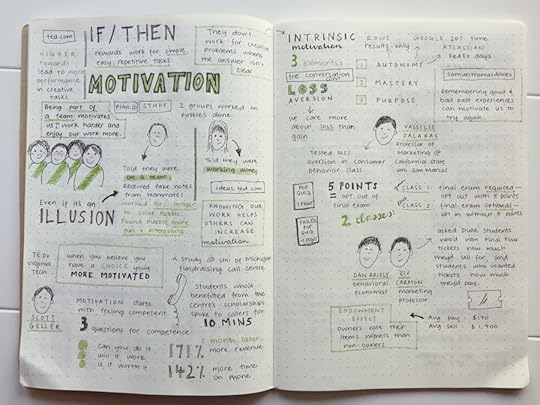 ted.com
IF/THEN
rewards work for simple,
easy, repetitive tasks
They don't
work for creative
problems where
the answer isn't
clear
HIGHER
rewards
lead to worse
performance
in creative
tasks
MOTIVATION
Being part of
a team motivates
us to work harder and
enjoy our work more.
STUDY
2 groups worked on
puzzles alone
Told they were
on a team
Received fake notes
from teammates
worked 50% longer
to solve puzzle.
Found puzzle more
fun + interesting
Told they were
working alone
ideas.ted.com
KNOWING OUR
WORK HELPS
OTHERS CAN
INCREASE
motivation
Even if it's an
ILLUSION
TEDx
Virginia
Tech
when you believe you
have a CHOICE you're
MORE MOTIVATED
SCOTT
GELLER
MOTIVATION starts
with feeling competent
3 questions for competence
Can you do it
will it work
is it worth it
A study @ uni of Michigan
fundraising call centre
Students who'd
benefited from the
centre's scholarships
spoke to callers for
10 MINS
month later...
171% more revenue
142% more time
on phone
INTRINSIC
motivation
ROWE
results-only
GOOGLE 20% time
ATLASSIAN
FedEx days
3 elements
1 AUTONOMY
2 MASTERY
3 PURPOSE
the conversation
.com
LOSS
AVERSION
we care more
about loss than
gain
Samuelthomasdavies
Remembering good &
bad past experiences
can motivate us to
try again
VASSILIS
DALAKAS
Professor of
Marketing @
California State
uni San Marcus
Tested loss
aversion in consumer
behavior class
POP
QUIZ
5 POINTS
= opt out of
final exam
FAILED
POP
QUIZ
2 classes:
CLASS 1: final exam required -
opt out with 5 points
CLASS 2: final exam optional -
opt in without 5 points
DAN ARIELY
behavioral
economist
ZIV
CARMON
marketing
professor
asked Duke students
who'd won Final Four
tickets how much
they'd sell for, and
students who wanted
tickets how much
they'd pay.
ENDOWMENT
EFFECT
owners rate their
items higher than
non-owners
Avg pay: $170
Avg sell: $2,400